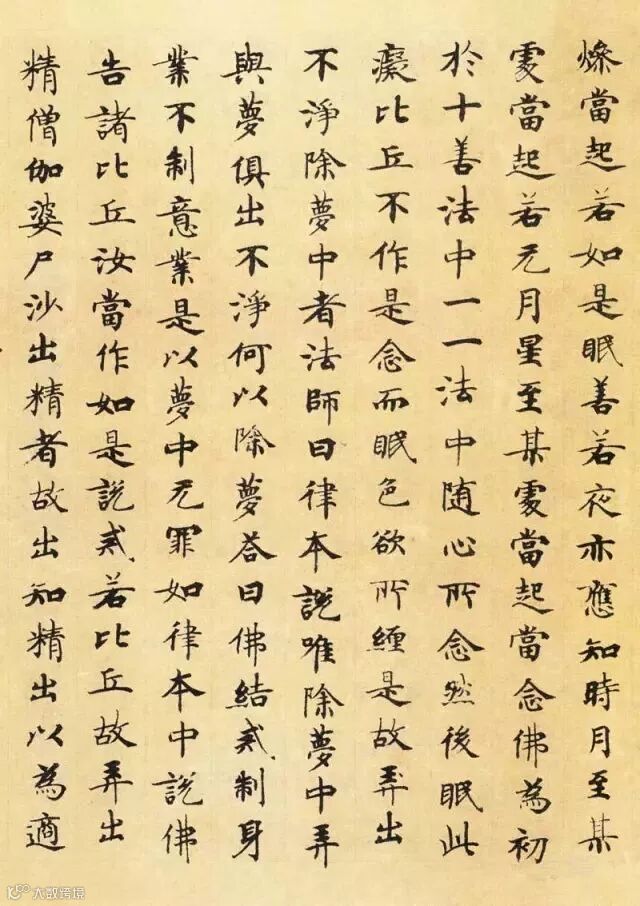 燥當起若如是眠善若夜亦應知時月至某
處當起若无月星至某處當起當念佛為初
於十善法中一一法中随心所念然後眠此
癡比丘不作是念而眠色欲所纏是故弄出
不淨除夢中者法師曰律本說唯除夢中弄
與夢俱出不淨何以除夢荅曰佛結戒制身
業不制意業是以夢中无罪如律本中說佛
告諸比丘汝當作如是說戒若比丘故弄出
精僧伽婆尸沙出精者故出知精出以為適
大数跨境